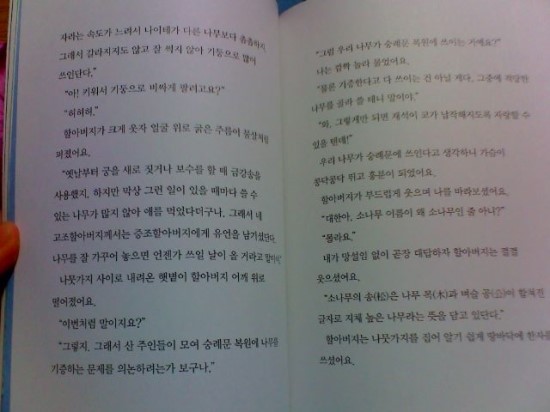 자라는 속도가 느려서 나이테가 다른 나무보다 촘촘하지.
그래서 갈라지지도 않고 잘 썩지 않아 기둥으로 많이
쓰인단다."
"아! 키워서 기둥으로 비싸게 팔려고요?"
"허허허."
할아버지가 크게 웃자 얼굴 위로 굵은 주름이 물살처럼
퍼졌어요.
"옛날부터 궁을 새로 짓거나 보수를 할 때 금강송을
사용했지. 하지만 막상 그런 일이 있을 때마다 쓸 수
있는 나무가 많지 않아 애를 먹었다더구나. 그래서 네
고조할아버지께서는 증조할아버지에게 유언을 남기셨단다.
나무를 잘 가꾸어 놓으면 언젠가 쓰일 날이 올 거라고 말이지."
나뭇가지 사이로 내려온 햇볕이 할아버지 어깨 위로
떨어졌어요.
"이번처럼 말이지요?"
"그렇지. 그래서 산 주인들이 모여 숭례문 복원에 나무를
기증하는 문제를 의논하려는가 보구나."
"그럼 우리 나무가 숭례문 복원에 쓰이는 거예요?"
나는 깜짝 놀라 물었어요.
"물론 기증한다고 다 쓰이는 건 아닐 게다. 그중에 적당한
나무를 골라 쓸 테니 말이야."
"와, 그렇게만 되면 재석이 코가 납작해지도록 자랑할 수
있을 텐데!"
우리 나무가 숭례문에 쓰인다고 생각하니 가슴이
콩닥콩닥 뛰고 흥분이 되었어요.
할아버지가 부드럽게 웃으며 나를 바라보셨어요.
"대한아, 소나무 이름이 왜 소나무인 줄 아니?"
"몰라요."
내가 망설임 없이 곧장 대답하자 할아버지는 껄껄
웃으셨어요.
"소나무의 송(松)은 나무 목(木)과 벼슬 공(公)이 합쳐진
글자로 지체 높은 나무라는 뜻을 담고 있단다."
할아버지는 나뭇가지를 집어 알기 쉽게 땅바닥에 한자를
쓰셨어요.